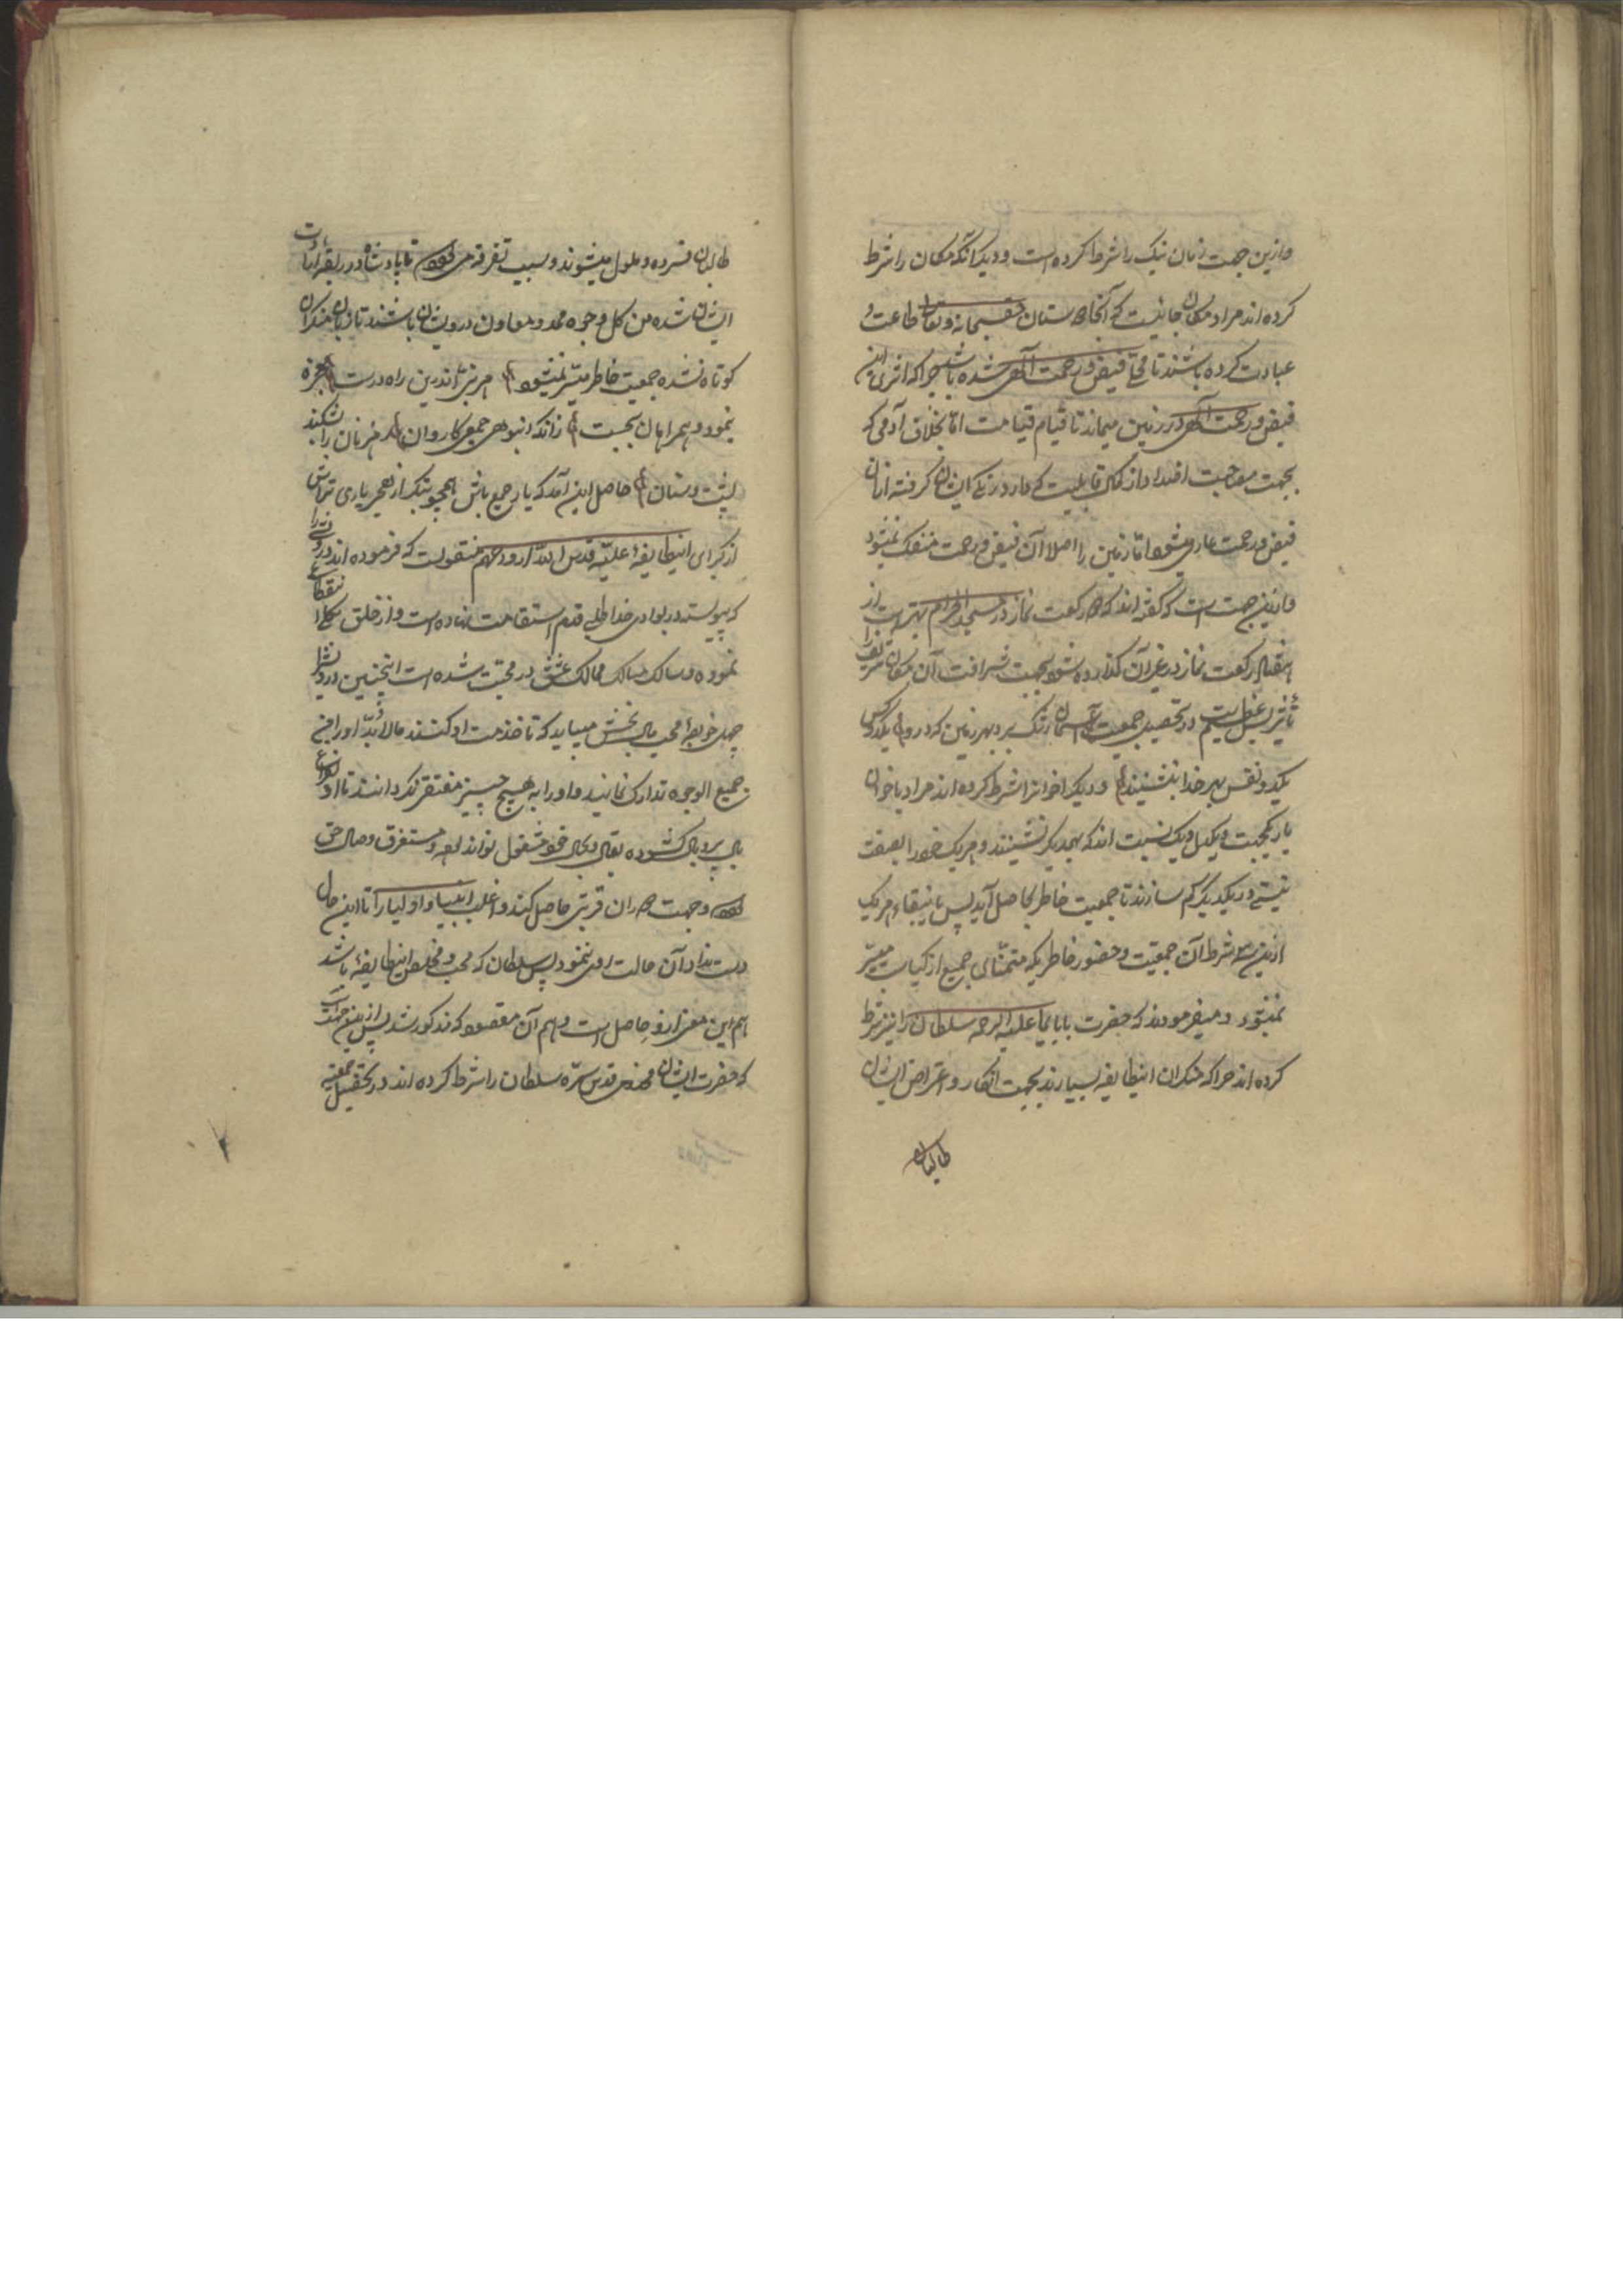 وازین جهت زمان نیک را شرط کرده است و دیگر آنکه مکان را شرط
کرده اند مراد مکان جائیست که آنجا دوستان حق سبحانه و تعالی طاعت و
عبادت کرده باشند تا محل فیض و رحمت الهی شده باشد چرا که اثری این
فیض و رحمت الهی در زمین میماند تا قیام قیامت اما بخلاف آدمی که
بجهت مصاحبت اضداد از قابلیت که دارد رنگ ایشان گرفته از آن
فیض و رحمت عاری میشود اما زمین را اصلا آن فیض و رحمت منفک نمیشود
و ازین جهت است که گفته اند که دو رکعت نماز در مسجد الحرام بهتر است از
رکعت نماز در غیر آن گذارده شود بجهت شرافت آن مکان شریف را
تأثیر عظیم است در تحصیل جمعیت آسمان رشک برد بهر زمین که درو یکدو کس
یکدو نفس بهر خدا بنشینند و دیگر اخوانرا شرط کرده اند مراد یاخوان
یار یکجهت و یکدل و یک نسبت اند که بهمدیگر نشینند و هر یک خود را بصفت
نیستی در یکدیگر گم سازند تا جمعیت خاطر حاصل آید پس بانتفاء هر یک
ازین سه شرط آن جمعیت و حضور خاطر یکه متمنای جمیع ازکیاست میسر
نمیشود و میفرمودند که حضرت بابا علیه الرحمه سلطان را نیز شرط
کرده اند چرا که منکران اینطایفه بسیارند بجهت انکار و اعتراض ایشان
طالبان
طالبان فسرده و ملول میشوند و سبب تفرقه می شود تا پادشاه در ربقه ارادت
ایشان نشده من کل وجوه ممد و معاون درویشان باشند تا زبان منکران
کوتاه نشده جمعیت خاطر میسر نمیشود هر نبی اندرین راه درست معجزه
بنمود و همراهان بجست زانکه انبوهی جمع کاروان رهزنان را بشکند
پشت و سنان حاصل این آمد که یار جمع باش همچو بتگر از حجر یاری تراش
از کبرای اینطایفه علیه قدس الله ارواحهم منقولست که فرموده اند درویشی را
که پیوسته در بوادی خدا طلبی قدم استقامت نهاده است و از خلق بکلی انقطاع
نموده و سالک مسالک ممالک عشق در محبت شده است اینچنین درویش را
چهل خواجه محب مال بخش میباید که تا خدمت او کنند مالابد او را من
جمیع الوجوه تدارک نمایند و او را به هیچ چیز مفتقر نگردانند تا او بفراغ
بال پر و بال گشوده بقال و بحال خود مشغول تواند بود و مستغرق وصال حق
شود و جهت دوران قربتی حاصل کند و اغلب انبیا و اولیا را تا این حال
دست نداد آن حالت روی ننمود پس سلطان که محب و مخلص اینطایفه باشد
هم این معنی ازو حاصل است و هم آن مقصود که مذکور شد پس ازین جهت است
که حضرت ایشان مخدومی قدس سره سلطان را شرط کرده اند در تحصیل جمعیت